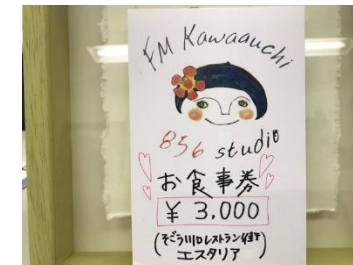 FM Kawaauchi
856 studio
お食事券
¥ 3,000
(そごう川口レストラン
エスタリア)